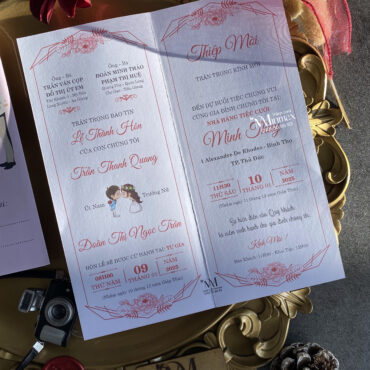 Ông - Bà
TRẦN VĂN CỌP
ĐỖ THỊ ÚT EM
Ông - Bà
ĐOÀN MINH THẢO
PHẠM THỊ HUỆ
TRÂN TRỌNG BÁO TIN
Lễ Thành Hôn
CỦA CON CHÚNG TÔI
Trần Thanh Quang
Út Nam
Trưởng Nữ
Đoàn Thị Ngọc Trân
HÔN LỄ SẼ ĐƯỢC CỬ HÀNH TẠI TƯ GIA
THỨ NĂM
09
THÁNG 01
2025
Thiệp Mời
TRÂN TRỌNG KÍNH MỜI
ĐẾN DỰ BUỔI TIỆC CHUNG VUI
CÙNG GIA ĐÌNH CHÚNG TÔI TẠI:
NHÀ HÀNG TIỆC CƯỚI
Minh
1 Alexandre De Rhodes - Bình Thọ
TP. Thủ Đức
11H30
THỨ SÁU
10
THÁNG 01
2025
Sự hiện diện của Quý khách
là niềm vinh hạnh cho gia đình chúng tôi.
Kính Mời